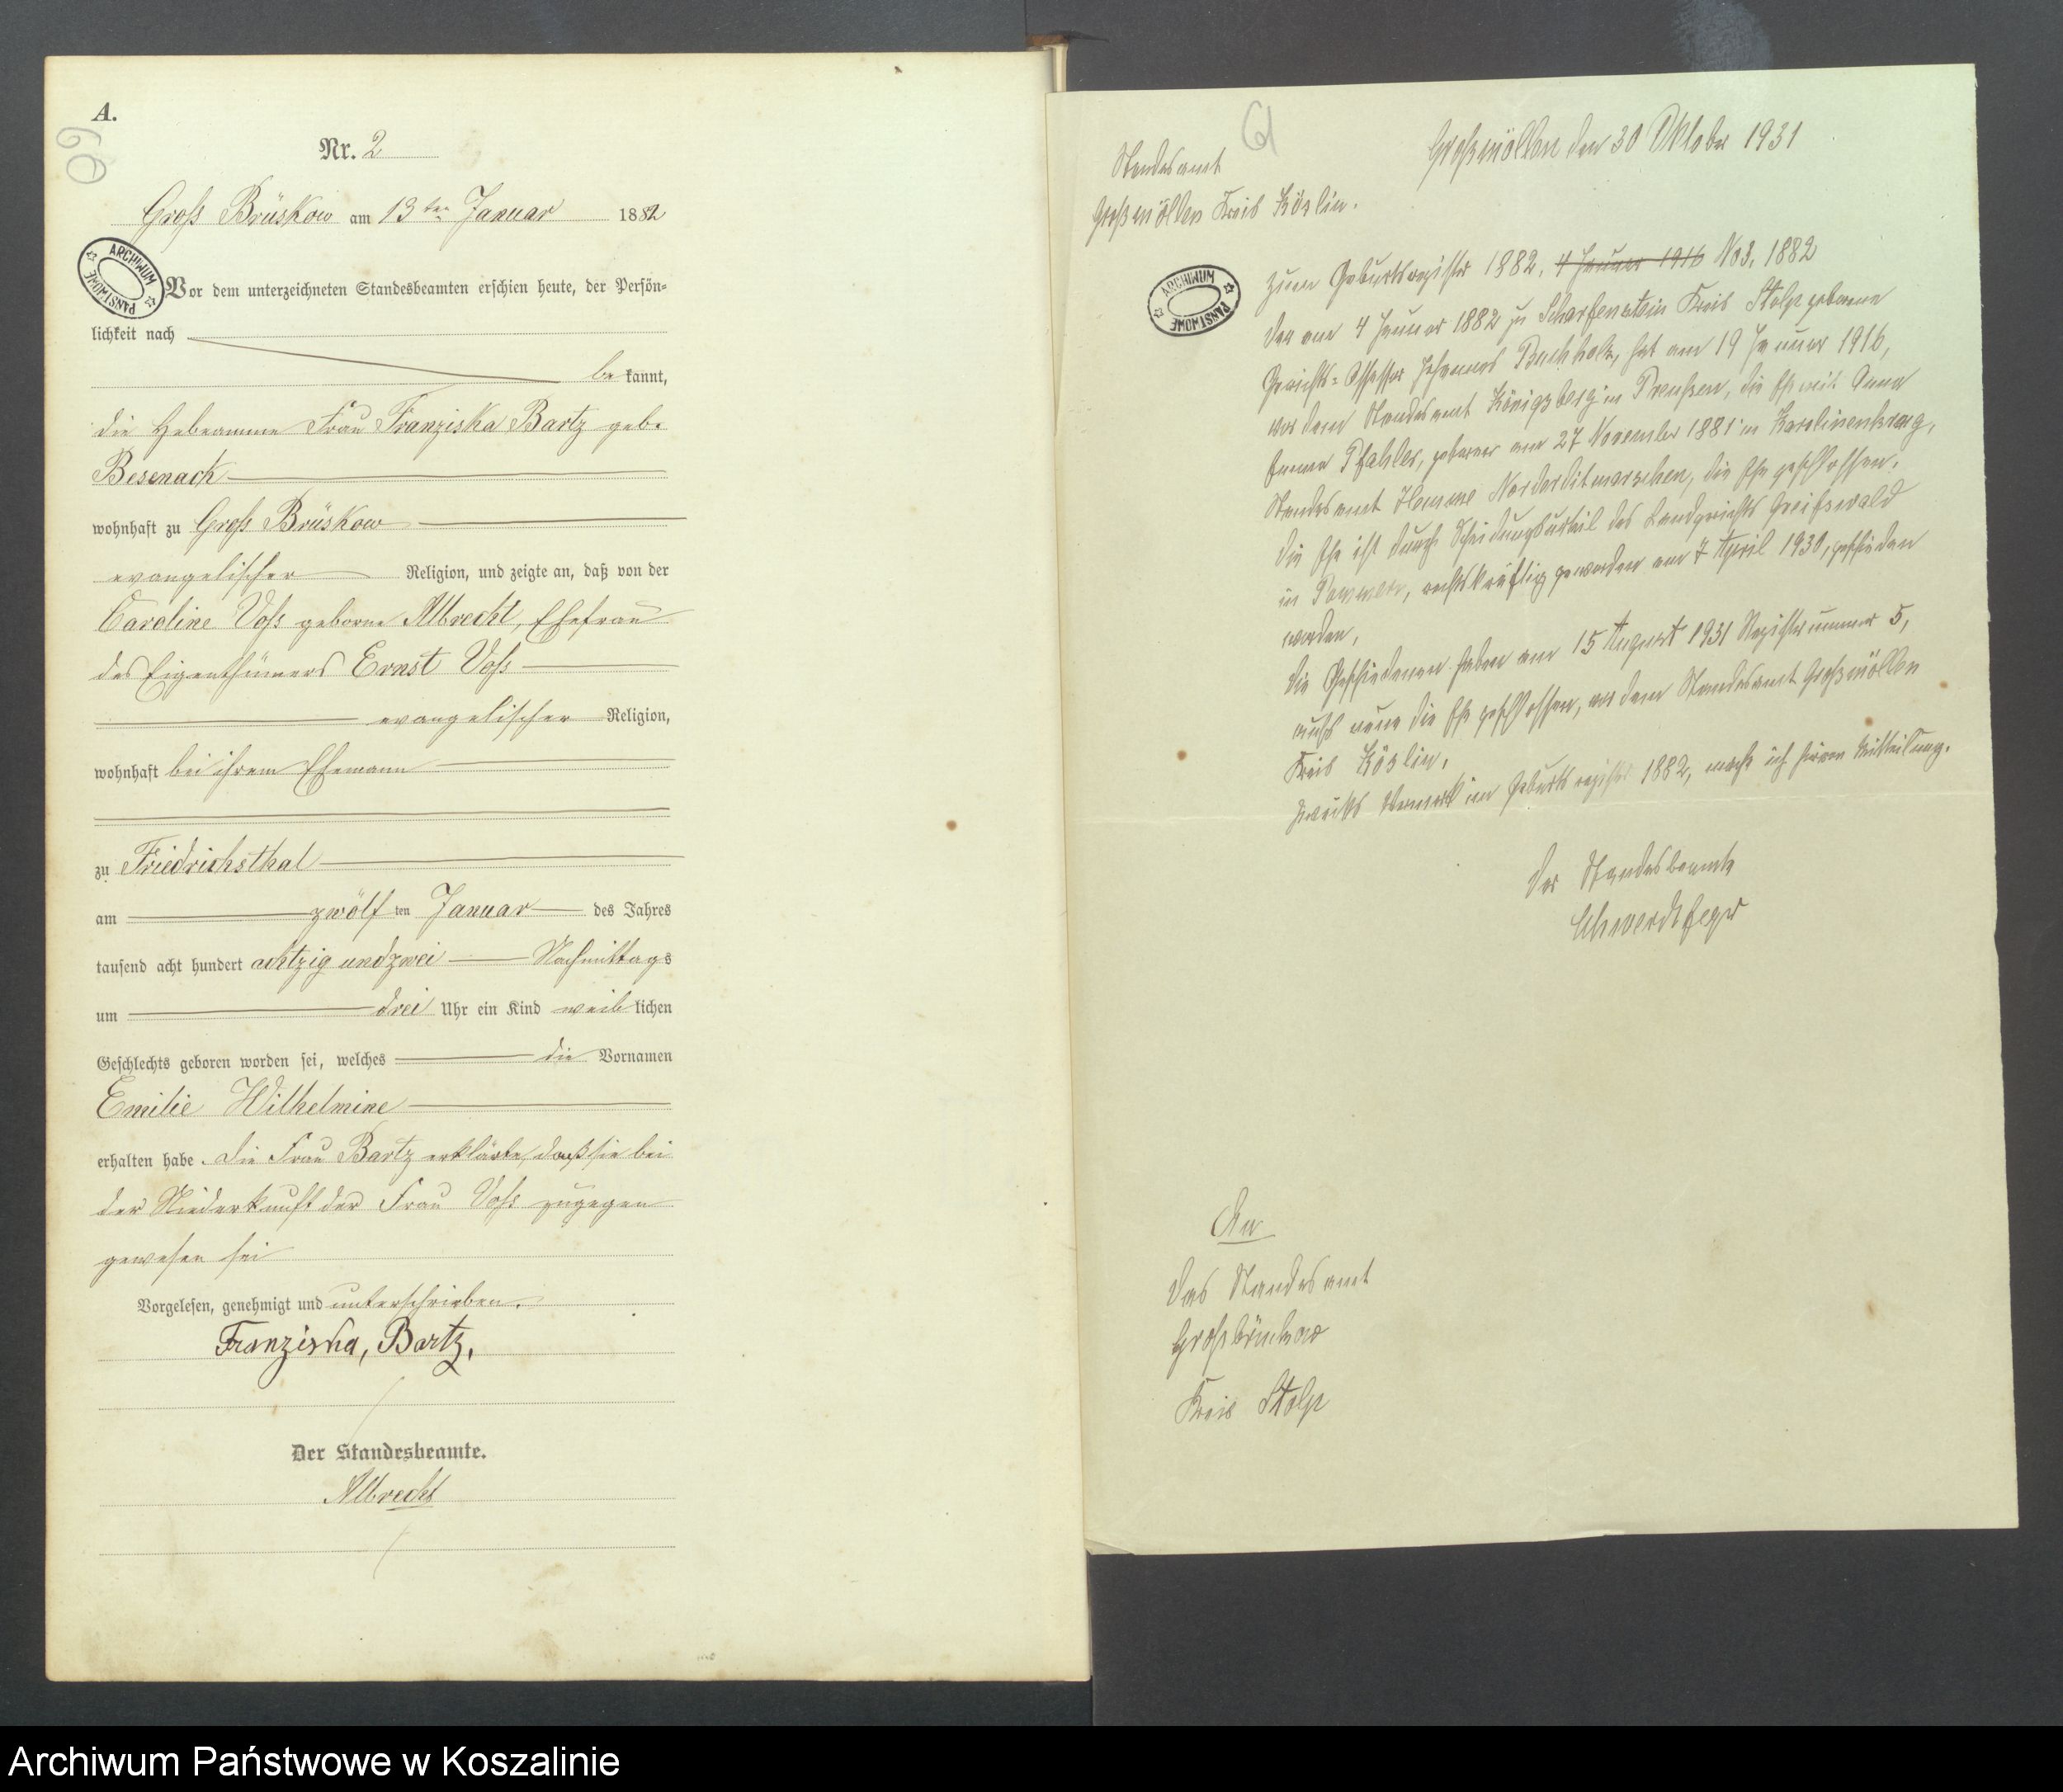 A.
60
Nr. 2
Gross Brüskow am 13ten Januar 1882
ARCHIWUM PAŃSTWOWE
Vor dem unterzeichneten Standesbeamten erschien heute, der Persön=
lichkeit nach
be kannt,
die Hebeamme Frau Franziska Bartz geb.
Besenack
wohnhaft zu Gross Brüskow
evangelischer Religion, und zeigte an, daß von der
Caroline Voss geborne Albrecht, Ehefrau
des Eigenthümers Ernst Voss
evangelischer Religion,
wohnhaft bei ihrem Ehemann
zu Friedrichsthal
am zwölf ten Januar des Jahres
tausend acht hundert achtzig und zwei Nachmittags
um drei Uhr ein Kind weib lichen
Geschlechts geboren worden sei, welches die Vornamen
Emilie Wilhelmine
erhalten habe. Die Frau Bartz erklärte, daß sie bei
der Niederkunft der Frau Voss zugegen
gewesen sei
Vorgelesen, genehmigt und unterschrieben.
Franziska, Bartz,
Der Standesbeamte.
Albrecht
61
Großmöllen den 30 Oktober 1931
Standesamt
Großmöllen Kreis Köslin.
ARCHIWUM PAŃSTWOWE
Zum Geburtsregister 1882, 4 Januar 1916 No 3, 1882
Der am 4 Januar 1882 zu Scharfenstein Kreis Stolp geborene
Gerichts=Assessor Johannes Buchholz, hat am 19 Januar 1916,
vor dem Standesamt Königsberg in Preußen, die Ehe mit Anna
Emma Pfahler, geboren am 27 November 1881 in Karolinenkoog,
Standesamt Hemme Norderditmarschen, die Ehe geschlossen.
Die Ehe ist durch Scheidungsurteil des Landgerichts Greifswald
in Pommern, rechtskräftig geworden am 7 April 1930, geschieden
worden,
Die Geschiedenen haben am 15 August 1931 Registernummer 5,
aufs neue die Ehe geschlossen, vor dem Standesamt Großmöllen
Kreis Köslin.
Zwecks Vermerk im Geburtsregister 1882, mache ich hievon Mitteilung.
Der Standesbeamte
An
Das Standesamt
Großbrüskow
Kreis Stolp
Archiwum Państwowe w Koszalinie